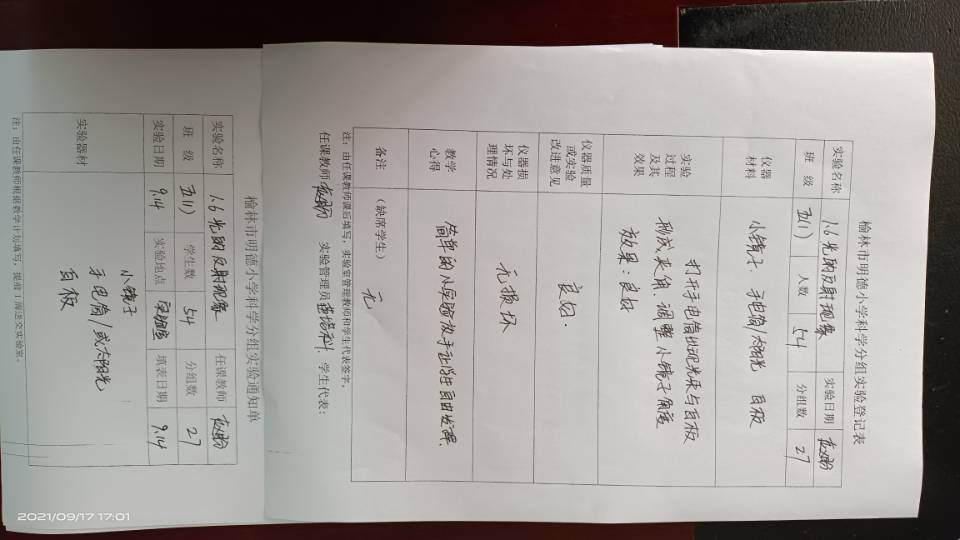 榆林市明德小学科学分组实验登记表
实验名称 1.6光的反射现象 实验日期
班 级 五(1) 人数 54 分组数 27
仪器材料 小镜子、手电筒/太阳光 白板
实验过程及其效果 打开手电筒出现光束与白板
形成夹角.调整小镜子角度
效果：良好
仪器质量或实验改进意见 良好.
仪器损坏与处理情况 无损坏
教学心得 简单的小实验放手让学生自由发挥.
备注 (缺席学生) 无
注：由任课教师课后填写，实验室管理教师和学生代表签字。
任课教师 实验管理员 学生代表：
榆林市明德小学科学分组实验通知单
实验名称 1.6光的反射现象 任课教师
班 级 五(1) 学生数 54 分组数 27
实验日期 9.14 实验地点 实验室 填表日期 9.14
实验器材 小镜子
手电筒/或太阳光
白板
注：由任课教师根据教学计划填写，提前1周送交实验室。
2021/09/17 17:01